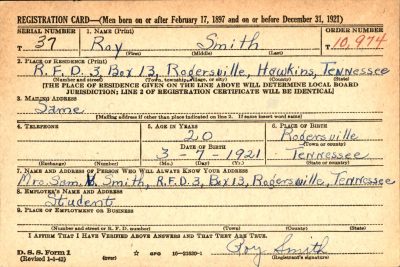 REGISTRATION CARD—(Men born on or after February 17, 1897 and on or before December 31, 1921)
SERIAL NUMBER 1. NAME (Print) ORDER NUMBER
T 37 Roy Smith T10,974
(First) (Middle) (Last)
2. PLACE OF RESIDENCE (Print)
R.F.D. 3, Box 13, Rogersville, Hawkins, Tennessee
(Number and street) (Town, township, village, or city) (County) (State)
[THE PLACE OF RESIDENCE GIVEN ON THE LINE ABOVE WILL DETERMINE LOCAL BOARD
JURISDICTION; LINE 2 OF REGISTRATION CERTIFICATE WILL BE IDENTICAL]
3. MAILING ADDRESS
Same
[Mailing address if other than place indicated on line 2. If same insert word same]
4. TELEPHONE 5. AGE IN YEARS 6. PLACE OF BIRTH
20 Rogersville
DATE OF BIRTH (Town or county)
3-7-1921 Tennessee
(Exchange) (Number) (Mo.) (Day) (Yr.) (State or country)
7. NAME AND ADDRESS OF PERSON WHO WILL ALWAYS KNOW YOUR ADDRESS
Mrs. Sam Smith, R.F.D. 3, Box 13, Rogersville, Tennessee
8. EMPLOYER'S NAME AND ADDRESS
Student
9. PLACE OF EMPLOYMENT OR BUSINESS
(Number and street or R. F. D. number) (Town) (County) (State)
I AFFIRM THAT I HAVE VERIFIED ABOVE ANSWERS AND THAT THEY ARE TRUE.
D. S. S. Form 1 Roy Smith
(Revised 1-1-42) (over) ☆ GPO 16—21630-1 (Registrant's signature)